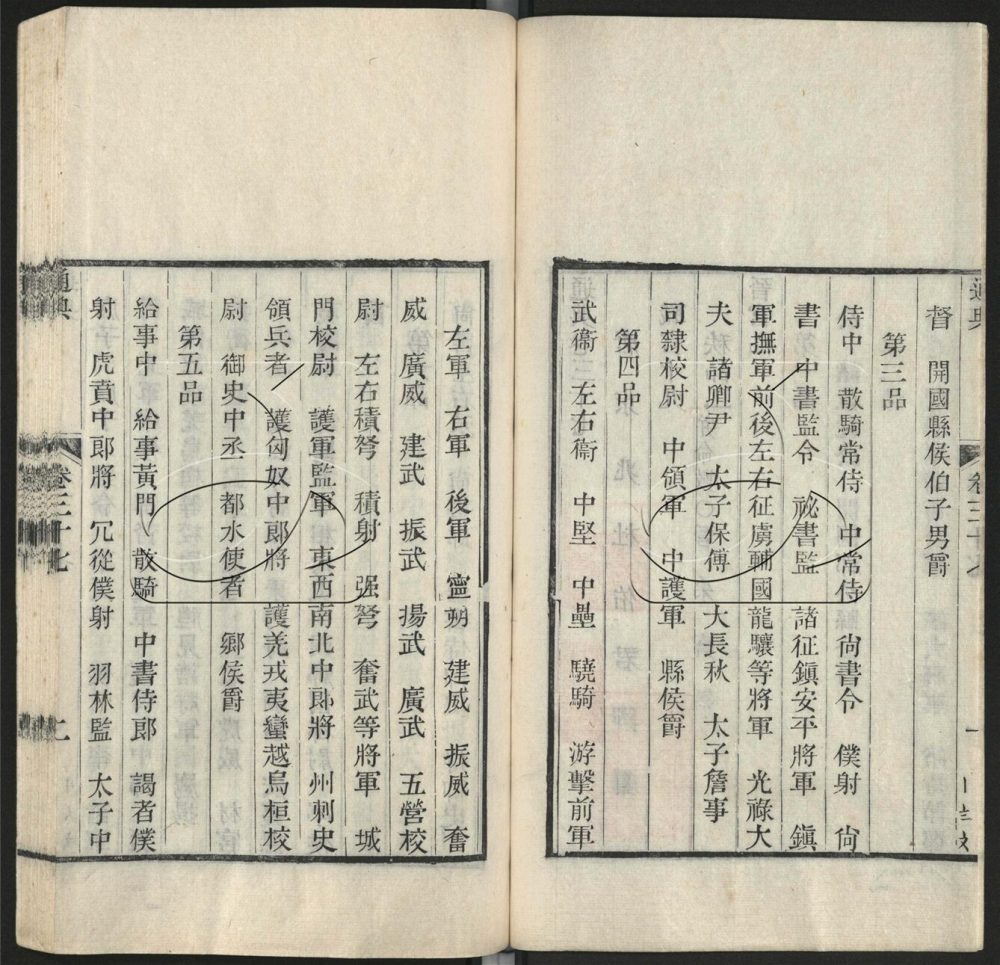 督 開國縣侯伯子男爵
第三品
侍中 散騎常侍 中常侍 尙書令 僕射 尙
書 中書監令 祕書監 諸征鎮安平將軍 鎮
軍撫軍前後左右征虜輔國龍驤等將軍 光祿大
夫 諸卿尹 太子保傅 大長秋 太子詹事
司隸校尉 中領軍 中護軍 縣侯爵
第四品
武衞 左右衞 中堅 中壘 驍騎 游擊前軍
左軍 右軍 後軍 寧朔 建威 振威 奮
威 廣威 建武 振武 揚武 廣武 五營校
尉 左右積弩 積射 强弩 奮武等將軍 城
門校尉 護軍監軍 東西南北中郎將 州刺史
領兵者 護匈奴中郎將 護羌戎夷蠻越烏桓校
尉 御史中丞 都水使者 鄉侯爵
第五品
給事中 給事黃門 散騎 中書侍郎 謁者僕
射 虎賁中郎將 冗從僕射 羽林監 太子中
通典
卷三十七
七